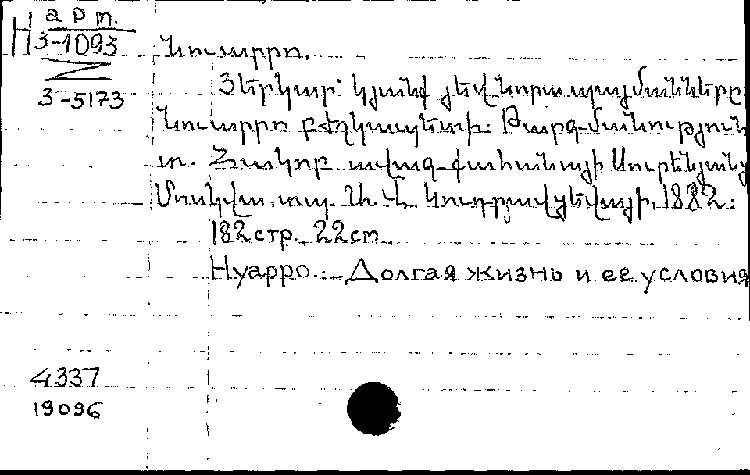 арт.
Н 3-1093
3-5173
Նուարրո.
Երկար կյանք յեվ նորա պայմանները
Նուարրո բժշկապետի: Թարգմանություն
տ. Հակոբ ավագ-քահանայի Սուրենյանց
Մոսկվա, տպ. 1882:
182 стр. 22 cm
Нуарро.- Долгая жизнь и ее условия
4337
19096